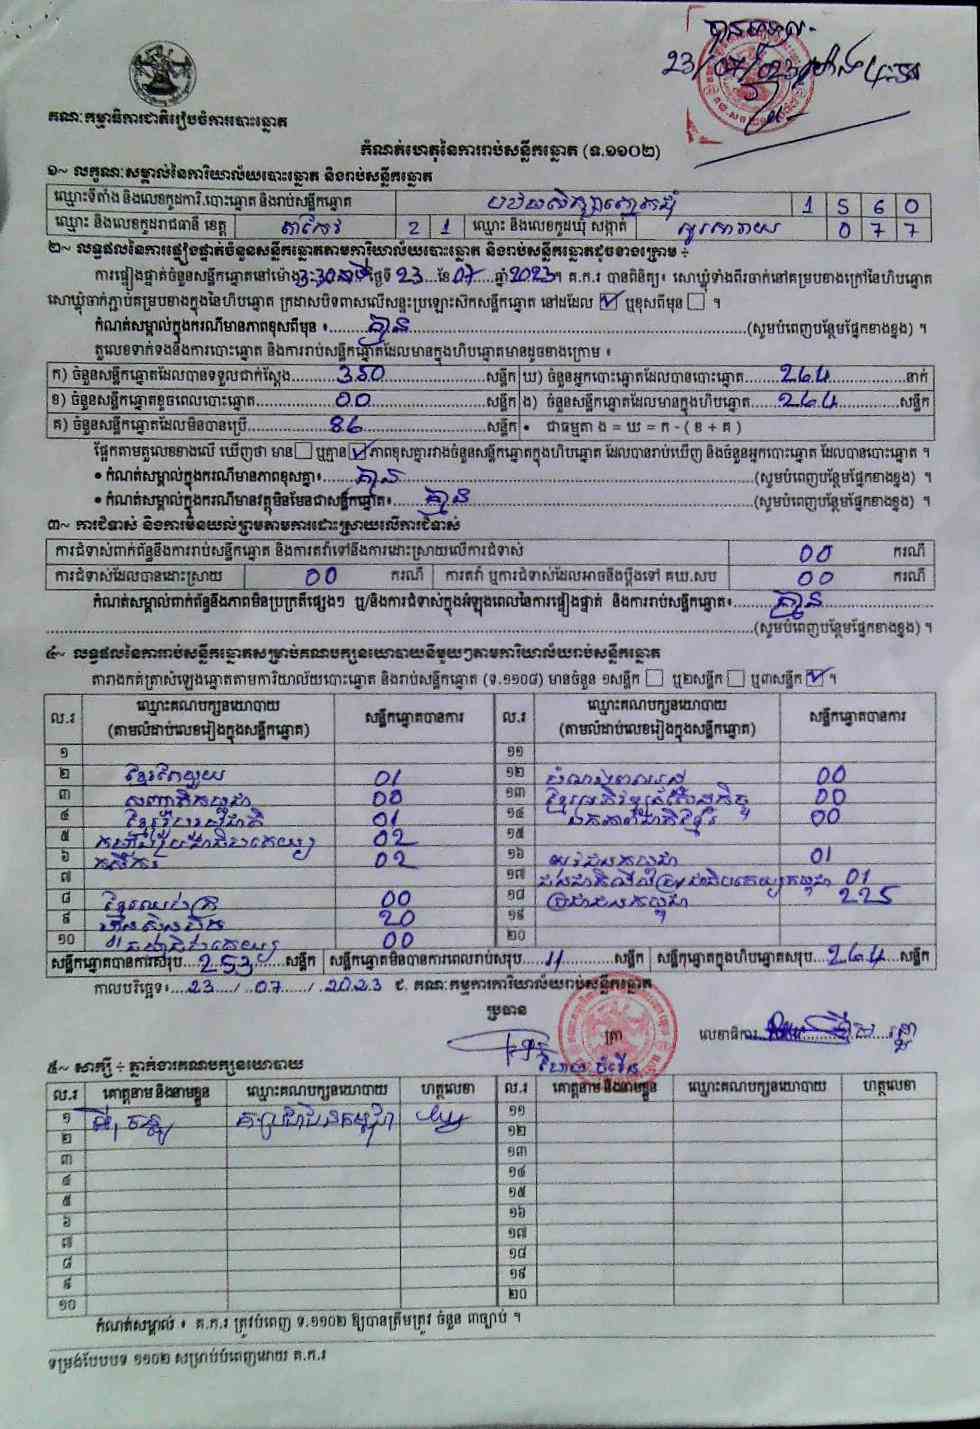 បានទទួល
23/07/023
គណៈកម្មាធិការជាតិរៀបចំការបោះឆ្នោត
កំណត់ហេតុនៃការរាប់សន្លឹកឆ្នោត (ទ.១១០២)
១~ លក្ខណៈសម្គាល់នៃការិយាល័យបោះឆ្នោត និងរាប់សន្លឹកឆ្នោត
ឈ្មោះទីតាំង និងលេខកូដការិ.បោះឆ្នោត និងរាប់សន្លឹកឆ្នោត 1 5 6 0
ឈ្មោះ និងលេខកូដរាជធានី ខេត្ត តាកែវ 2 1 ឈ្មោះ និងលេខកូដឃុំ សង្កាត់ 0 7 7
២~ លទ្ធផលនៃការផ្ទៀងផ្ទាត់ចំនួនសន្លឹកឆ្នោតតាមការិយាល័យបោះឆ្នោត និងរាប់សន្លឹកឆ្នោតដូចខាងក្រោម ÷
ការផ្ទៀងផ្ទាត់ចំនួនសន្លឹកឆ្នោតនៅម៉ោង 3:30នាទី ថ្ងៃទី 23 ខែ 07 ឆ្នាំ 2023។ គ.ក.រ បានពិនិត្យ៖ សោឃ្លុំទាំងពីរចាក់នៅគម្របខាងក្រៅនៃហិបឆ្នោត
សោឃ្លុំចាក់ភ្ជាប់គម្របខាងក្នុងនៃហិបឆ្នោត ក្រដាសបិទពាសលើសន្ទះប្រឡោះស៊កសន្លឹកឆ្នោត នៅដដែល ☑ ឬខុសពីមុន ☐ ។
កំណត់សម្គាល់ក្នុងករណីមានភាពខុសពីមុន ៖ គ្មាន (សូមបំពេញបន្ថែមផ្នែកខាងខ្នង) ។
តួលេខទាក់ទងនឹងការបោះឆ្នោត និងការរាប់សន្លឹកឆ្នោតដែលមានក្នុងហិបឆ្នោតមានដូចខាងក្រោម ៖
ក) ចំនួនសន្លឹកឆ្នោតដែលបានទទួលជាក់ស្តែង 350 សន្លឹក ឃ) ចំនួនអ្នកបោះឆ្នោតដែលបានបោះឆ្នោត 264 នាក់
ខ) ចំនួនសន្លឹកឆ្នោតខូចពេលបោះឆ្នោត 00 សន្លឹក ង) ចំនួនសន្លឹកឆ្នោតដែលមានក្នុងហិបឆ្នោត 264 សន្លឹក
គ) ចំនួនសន្លឹកឆ្នោតដែលមិនបានប្រើ 86 សន្លឹក • ជាធម្មតា ង = ឃ = ក - ( ខ + គ )
ផ្អែកតាមតួលេខខាងលើ ឃើញថា មាន ☐ ឬគ្មាន ☑ ភាពខុសគ្នារវាងចំនួនសន្លឹកឆ្នោតក្នុងហិបឆ្នោត ដែលបានរាប់ឃើញ និងចំនួនអ្នកបោះឆ្នោត ដែលបានបោះឆ្នោត ។
• កំណត់សម្គាល់ក្នុងករណីមានភាពខុសគ្នា៖ គ្មាន (សូមបំពេញបន្ថែមផ្នែកខាងខ្នង) ។
• កំណត់សម្គាល់ក្នុងករណីមានវត្ថុមិនមែនជាសន្លឹកឆ្នោត៖ គ្មាន (សូមបំពេញបន្ថែមផ្នែកខាងខ្នង) ។
៣~ ការជំទាស់ និងការមិនយល់ព្រមតាមការដោះស្រាយលើការជំទាស់
ការជំទាស់ពាក់ព័ន្ធនឹងការរាប់សន្លឹកឆ្នោត និងការតវ៉ាទៅនឹងការដោះស្រាយលើការជំទាស់ 00 ករណី
ការជំទាស់ដែលបានដោះស្រាយ 00 ករណី ការតវ៉ា ឬការជំទាស់ដែលអាចនឹងប្តឹងទៅ គឃ.សប 00 ករណី
កំណត់សម្គាល់ពាក់ព័ន្ធនឹងភាពមិនប្រក្រតីផ្សេងៗ ឬ/និងការជំទាស់ក្នុងអំឡុងពេលនៃការផ្ទៀងផ្ទាត់ និងការរាប់សន្លឹកឆ្នោត៖ គ្មាន
(សូមបំពេញបន្ថែមផ្នែកខាងខ្នង) ។
៤~ លទ្ធផលនៃការរាប់សន្លឹកឆ្នោតសម្រាប់គណបក្សនយោបាយនីមួយៗតាមការិយាល័យរាប់សន្លឹកឆ្នោត
តារាងកត់ត្រាសំឡេងឆ្នោតតាមការិយាល័យបោះឆ្នោត និងរាប់សន្លឹកឆ្នោត (ទ.១១០៨) មានចំនួន ១សន្លឹក ☐ ឬ២សន្លឹក ☐ ឬ៣សន្លឹក ☑ ។
ល.រ ឈ្មោះគណបក្សនយោបាយ (តាមលំដាប់លេខរៀងក្នុងសន្លឹកឆ្នោត) សន្លឹកឆ្នោតបានការ ល.រ ឈ្មោះគណបក្សនយោបាយ (តាមលំដាប់លេខរៀងក្នុងសន្លឹកឆ្នោត) សន្លឹកឆ្នោតបានការ
១ ១១
២ 01 ១២ 00
៣ 00 ១៣ 00
៤ 01 ១៤ ឯកភាពជាតិខ្មែរ 00
៥ 02 ១៥
៦ កសិករ 02 ១៦ 01
៧ ១៧ 01
៨ ខ្មែរឈប់ក្រ 00 ១៨ ប្រជាជនកម្ពុជា 225
៩ ហ៊្វុនស៊ិនប៉ិច 20 ១៩
១០ 00 ២០
សន្លឹកឆ្នោតបានការសរុប 253 សន្លឹក សន្លឹកឆ្នោតមិនបានការពេលរាប់សរុប 11 សន្លឹក សន្លឹកឆ្នោតក្នុងហិបឆ្នោតសរុប 264 សន្លឹក
កាលបរិច្ឆេទ៖ 23 / 07 / 2023 ៩. គណៈកម្មការការិយាល័យរាប់សន្លឹកឆ្នោត
ប្រធាន
ត្រា លេខាធិការ
៥~ សាក្សី ÷ ភ្នាក់ងារគណបក្សនយោបាយ
ល.រ គោត្តនាម និងនាមខ្លួន ឈ្មោះគណបក្សនយោបាយ ហត្ថលេខា ល.រ គោត្តនាម និងនាមខ្លួន ឈ្មោះគណបក្សនយោបាយ ហត្ថលេខា
១ គ.ប្រជាជនកម្ពុជា ១១
២ ១២
៣ ១៣
៤ ១៤
៥ ១៥
៦ ១៦
៧ ១៧
៨ ១៨
៩ ១៩
១០ ២០
កំណត់សម្គាល់ ៖ គ.ក.រ ត្រូវបំពេញ ទ.១១០២ ឱ្យបានត្រឹមត្រូវ ចំនួន ៣ច្បាប់ ។
ទម្រង់បែបបទ ១១០២ សម្រាប់បំពេញដោយ គ.ក.រ